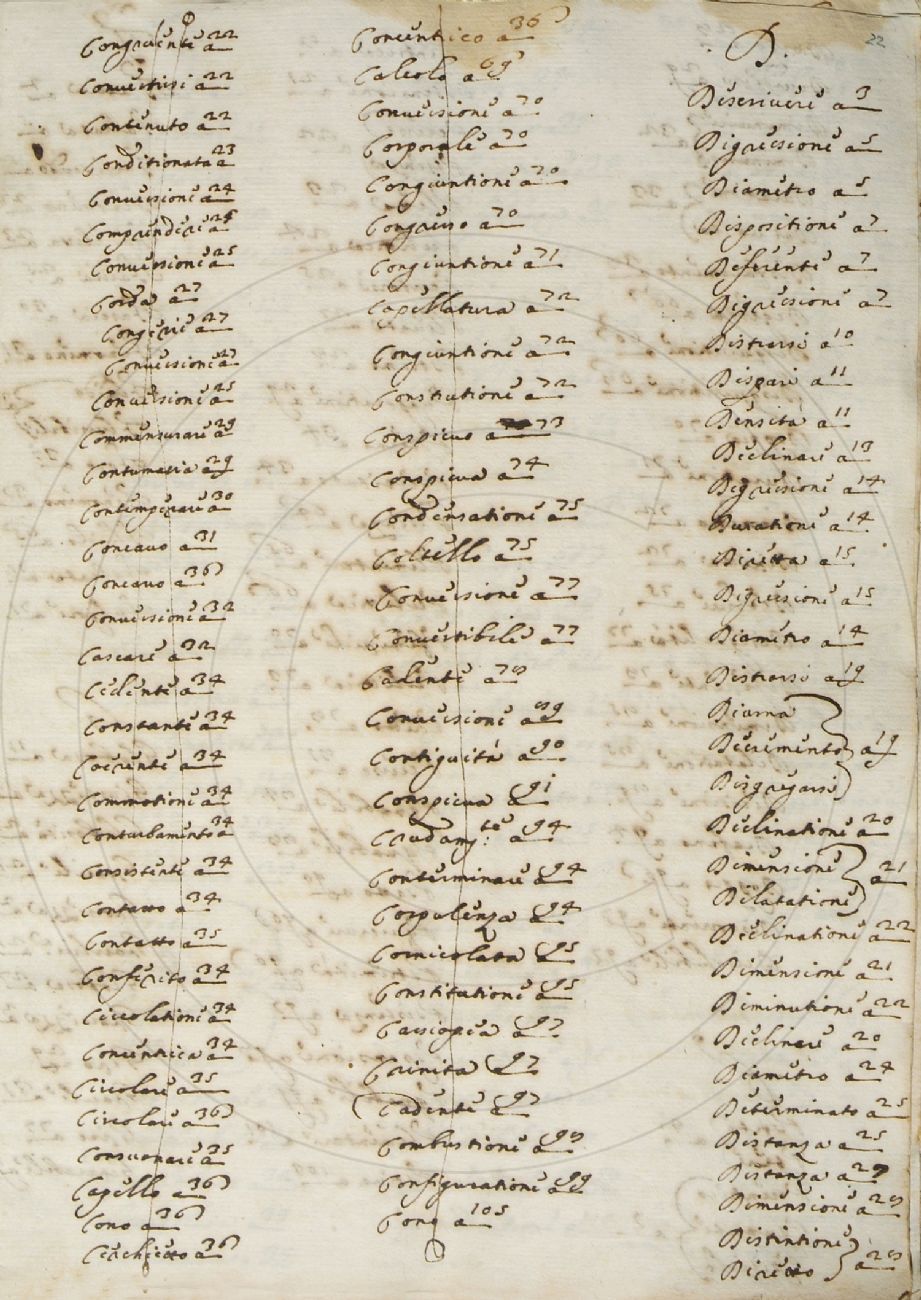 Congruente a 22
Convertirsi a 22
Contenuto a 22
Conditionata a 23
Conversione a 24
Comprendere a
Conversione a 25
Corda a 27
Congerie a 27
Conversione a
Conversione a 25
Commensurare a 29
Contumatia a 29
Contemperare a 30
Concavo a 31
Concavo a 36
Conversione a 32
Cascare a 32
Cedente a 34
Constante a 34
Coerente a 34
Commotione a 34
Conturbamento a 34
Consistente a 34
Contatto a 34
Contatto a 35
Conferito a 34
Circolatione a 34
Concentrica a 34
Circolare a 35
Circolare a 36
Consuonare a 35
Capello a 36
Cono a 36
Cerchietto a 36
Concentrico a 36
Calcolo a 69
Conversione a 70
Corporale a 70
Congiuntione a 70
Congresso a 70
Congiuntione a 71
Capellatura a 72
Congiuntione a 72
Constitutione a 72
Conspicuo a 73
Conspicua a 74
Condensatione a 75
Coltello a 75
Conversione a 77
Convertibile a 77
Cadente a 78
Conversione a 89
Contiguità a 90
Conspicua a 91
Crudamte a 94
Conterminare a 94
Corpulenza a 94
Cornicolata a 95
Constitutione a 95
Cassiopea a 97
Crinita a 97
Cadente a 97
Combustione a 98
Configuratione a 99
Cono a 105
22
D.
Descrivere a 3
Digressione a 5
Diametro a 5
Dispositione a 7
Deferente a 7
Digressione a 7
Distorsi a 10
Dispari a 11
Densità a 11
Declinare a 13
Digressione a 14
Duratione a 14
Diretta a 15
Digressione a 15
Diametro a 14
Distrarsi a 19
Diurna
Decremento a 19
Disgregarsi
Declinatione a 20
Dimensione a 21
Dilatatione
Declinatione a 22
Dimensione a 21
Diminutione a 22
Declinare a 20
Diametro a 24
Determinato a 25
Distanza a 25
Distanza a 27
Dimensione a 28
Distintione
Diretto a 28